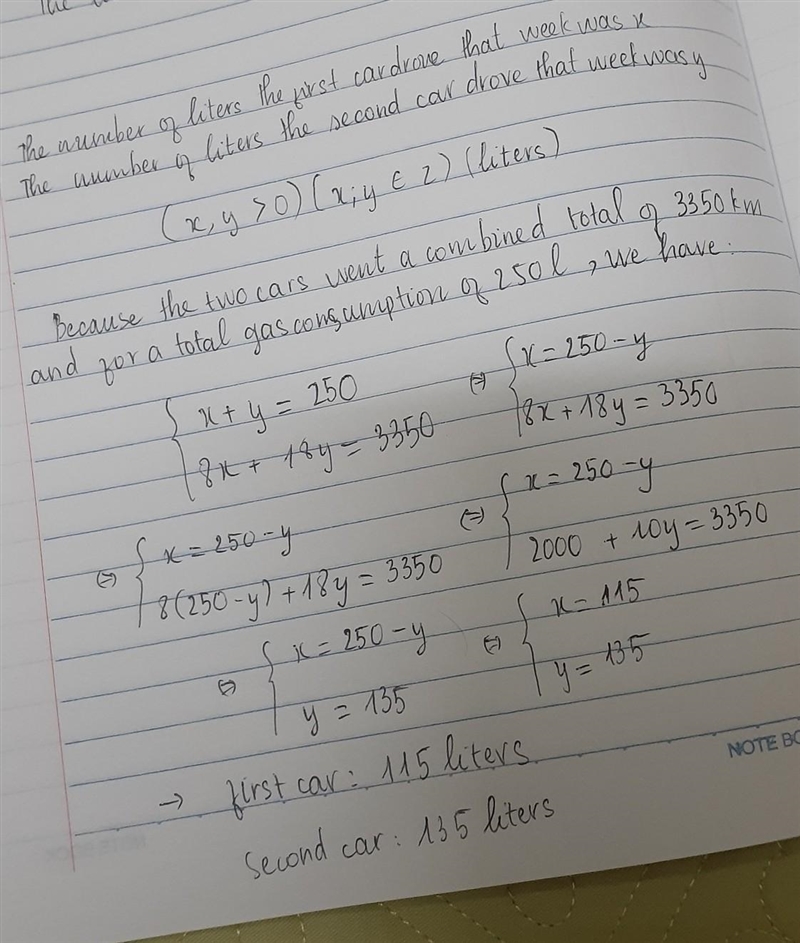 The
The number of liters the first car drove that week was x
The number of liters the second car drove that week was y
(x, y > 0) (x; y ∈ Z) (liters)
Because the two cars went a combined total of 3350 km
and for a total gas consumption of 250l, we have:
{ x + y = 250 (=) { x = 250 - y
{ 8x + 18y = 3350 { 8x + 18y = 3350
(=) { x = 250 - y (=) { x = 250 - y
{ 8(250 - y) + 18y = 3350 { 2000 + 10y = 3350
(=) { x = 250 - y (=) { x = 115
{ y = 135 { y = 135
→ first car: 115 liters
Second car: 135 liters
NOTE BO